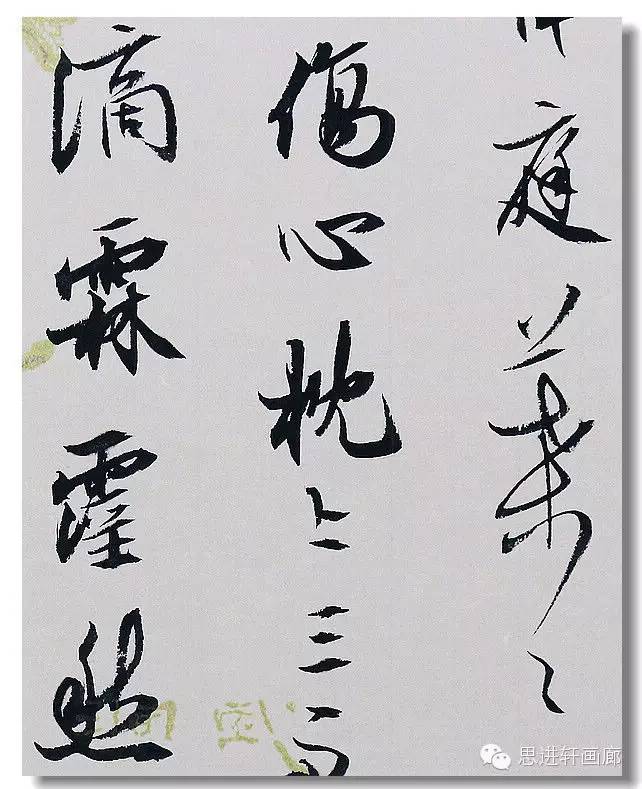 庭葉々
傷心枕上三
滴霖霪愁
思进轩画廊